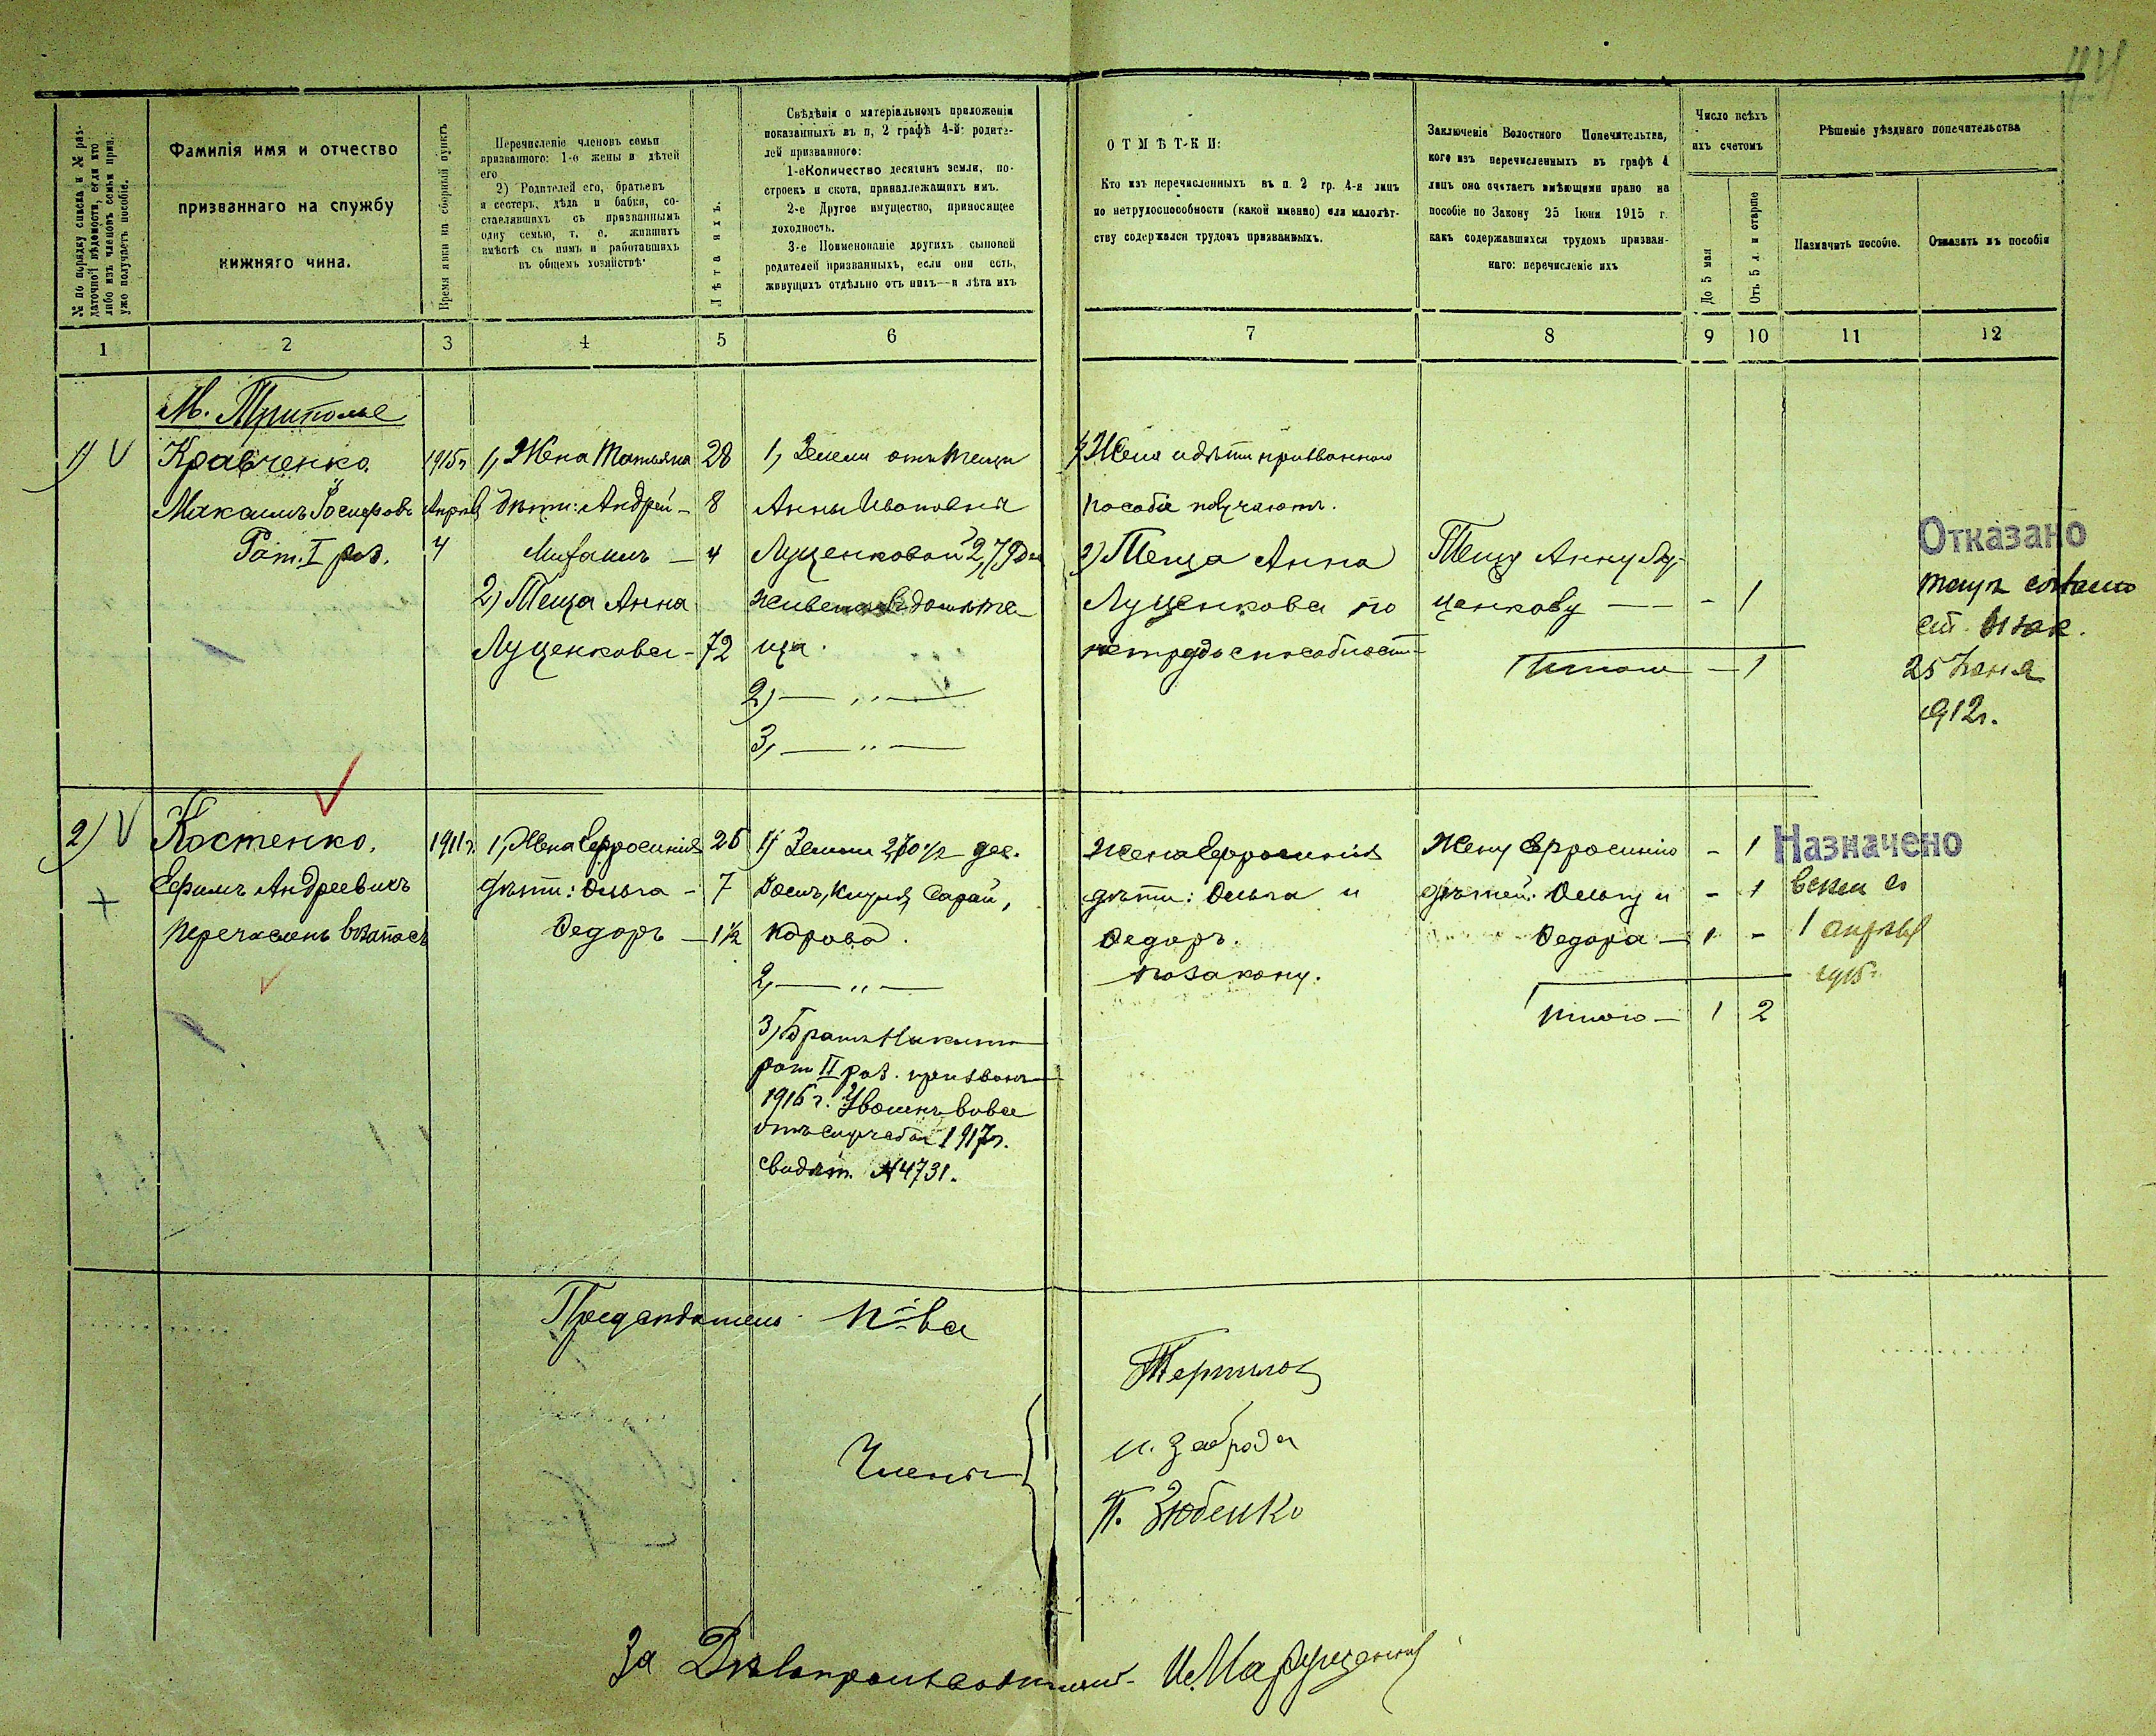 № по порядку списка и № раз-
даточной вѣдомости, если кто
либо изъ членовъ семьи приз.
уже получаетъ пособіе.
Фамилія имя и отчество
призваннаго на службу
нижняго чина.
Время явки на сборный пунктъ
Перечисленіе членовъ семьи
призваннаго: 1-е жены и дѣтей
его
2) Родителей его, братьевъ
и сестеръ, дѣда и бабки, со-
ставлявшихъ съ призваннымъ
одну семью, т. е. жившихъ
вмѣстѣ съ нимъ и работавшихъ
въ общемъ хозяйствѣ
Лѣта ихъ.
Свѣдѣнія о матеріальномъ приложеніи
показанныхъ въ п, 2 графѣ 4-й: родите-
лей призваннаго:
1-е Количество десятинъ земли, по-
строекъ и скота, принадлежащихъ имъ.
2-е Другое имущество, приносящее
доходность.
3-е Поименованіе другихъ сыновей
родителей призванныхъ, если они есть,
живущихъ отдѣльно отъ нихъ—и лѣта ихъ
ОТМѢТ-КИ:
Кто изъ перечисленныхъ въ п. 2 гр. 4-я лицъ
по нетрудоспособности (какой именно) или малолѣт-
ству содержался трудомъ призванныхъ.
Заключеніе Волостного Попечительтва,
кого изъ перечисленныхъ въ графѣ 4
лицъ оно считаетъ имѣющими право на
пособіе по Закону 25 Іюня 1915 г.
какъ содержавшихся трудомъ призван-
наго: перечисленіе ихъ
Число всѣхъ
ихъ счетомъ
До 5 мал
Отъ 5 л. и старше
Рѣшеніе уѣзднаго попечительства
Назначить пособіе.
Отказать въ пособіи
1 2 3 4 5 6 7 8 9 10 11 12
М. Триполье
1) V Кравченко 1915г 1, Жена Татьяна 28 1, Земли отъ тещи 1, Жена и дѣти призваннаго
Максимъ Апрѣля Дѣти: Андрей - 8 Анны Ивановны пособіе получаютъ.
Рат. I раз. 4 Михаилъ - 4 Луценковой 2,79 2) Теща Анна Тещу Анну Лу- Отказано
2) Теща Анна живетъ Луценкова по ценкову - - - 1
Луценкова - 72 ща. нетрудоспособности Итого - 1 25 Іюня
2) — „ — 1912г.
3, — „ —
2) V Костенко. 1911г. 1, Жена Ефросинія 26 1) Земли дес. Жена Ефросинія Жену Ефросинію - 1 Назначено
Ефимъ Андреевичъ Дѣти: Ольга - 7 Домъ, Сарай, дѣти: Ольга и дѣтей: Ольгу и - 1 всѣмъ съ
перечисленъ въ запасъ Федоръ - 1½ корова. Федоръ. Федора - 1 - 1 апрѣля
2, — „ — по закону. 1915г.
Итого - 1 2
3) Братъ Никита
рат II раз. призванъ
1916 г. Уволенъ вовсе
отъ службы 1917г.
свидѣт. № 4731.
Предсѣдатель П-ва
Члены
И. Заброда
П. Зюбенко
За Дѣлопроизводителя И. Марущенко